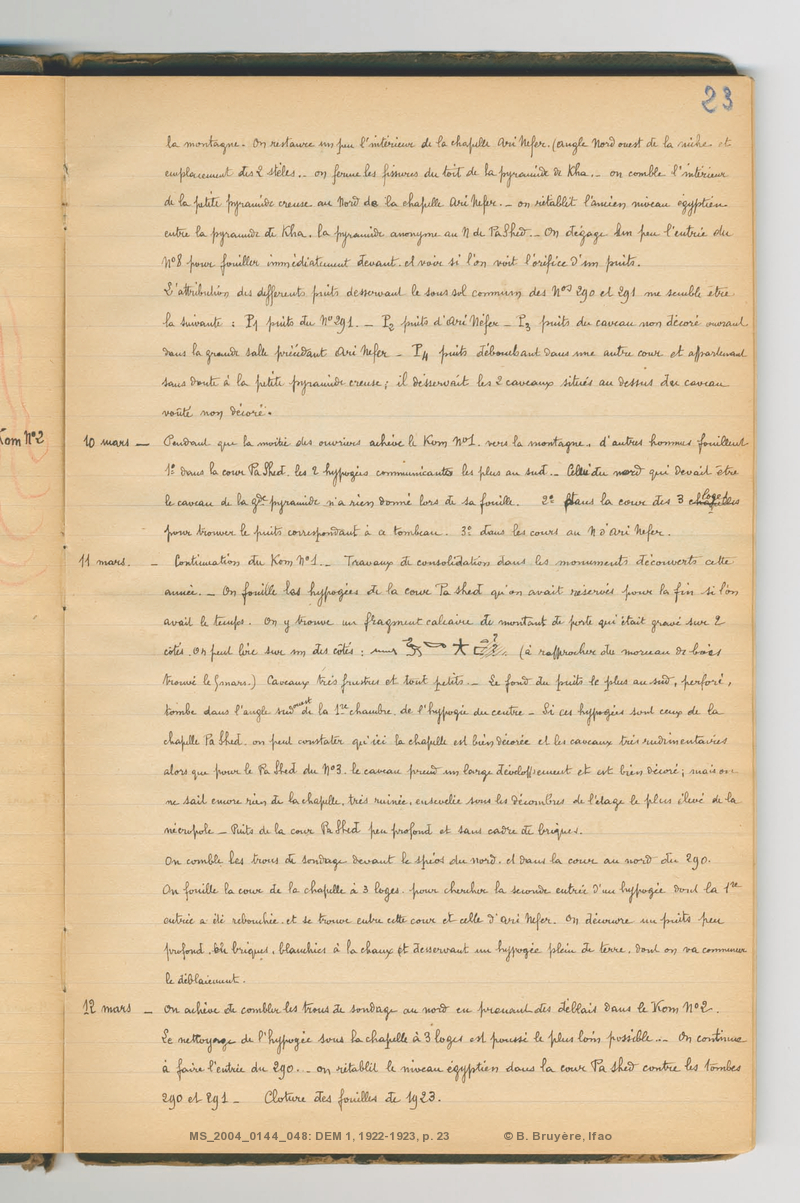 23
la montagne. On restaure un peu l'intérieur de la chapelle Ari Nefer. (angle Nord ouest de la niche. et
emplacement des 2 stèles. _ on ferme les fissures du toit de la pyramide de Kha. _ on comble l'intérieur
de la petite pyramide creuse au Nord de la chapelle Ari Nefer. _ on rétablit l'ancien niveau égyptien
entre la pyramide de Kha. la pyramide anonyme au N de Pa Shed. _ On dégage un peu l'entrée du
N° 8 pour fouiller immédiatement devant. et voir si l'on voit l'orifice d'un puits.
L'attribution des différents puits desservant le sous sol commun des Nos 290 et 291 me semble être
la suivante : P1 puits du N° 291. _ P2 puits d'Ari Nefer _ P3 puits du caveau non décoré ouvrant
dans la grande salle précédant Ari Nefer _ P4 puits débouchant dans une autre cour et appartenant
sans doute à la petite pyramide creuse ; il desservait les 2 caveaux situés au dessus du caveau
voûté non décoré.
Kom N° 2
10 mars _ Pendant que la moitié des ouvriers achève le Kom N° 1. vers la montagne. d'autres hommes fouillent
1° dans la cour Pa Shed. les 2 hypogées communicants les plus au sud. _ Celui du nord qui devait être
le caveau de la gde pyramide n'a rien donné lors de sa fouille. 2° dans la cour des 3 chapelles loges
pour trouver le puits correspondant à ce tombeau. 3° dans les cours au N d'Ari Nefer.
11 mars. _ Continuation du Kom N° 1. _ Travaux de consolidation dans les monuments découverts cette
année. _ On fouille les hypogées de la cour Pa Shed qu'on avait réservés pour la fin si l'on
avait le temps. On y trouve un fragment calcaire de montant de porte qui était gravé sur 2
côtés. On peut lire sur un des côtés : (à rapprocher du morceau de bois
trouvé le 5 mars.) Caveaux très frustes et tout petits. _ Le fond du puits le plus au sud, perforé,
tombe dans l'angle sud ouest de la 1re chambre de l'hypogée du centre _ Si ces hypogées sont ceux de la
chapelle Pa Shed. on peut constater qu'ici la chapelle est bien décorée et les caveaux très rudimentaires
alors que pour le Pa Shed du N° 3. le caveau prend un large développement et est bien décoré ; mais on
ne sait encore rien de la chapelle, très ruinée, ensevelie sous les décombres de l'étage le plus élevé de la
nécropole _ Puits de la cour Pa Shed peu profond et sans cadre de briques.
On comble les trous de sondage devant le spéos du nord. et dans la cour au nord du 290.
On fouille la cour de la chapelle à 3 loges. pour chercher la seconde entrée d'un hypogée dont la 1re
entrée a été rebouchée et se trouve entre cette cour et celle d'Ari Nefer. On découvre un puits peu
profond. de briques, blanchies à la chaux et desservant un hypogée plein de terre. dont on va commencer
le déblaiement.
12 mars _ On achève de combler les trous de sondage au nord en prenant des déblais dans le Kom N° 2.
Le nettoyage de l'hypogée sous la chapelle à 3 loges est poussé le plus loin possible. _ On continue
à faire l'entrée du 290. _ on rétablit le niveau égyptien dans la cour Pa Shed contre les tombes
290 et 291 _ Cloture des fouilles de 1923.
MS_2004_0144_048: DEM 1, 1922-1923, p. 23 © B. Bruyère, Ifao